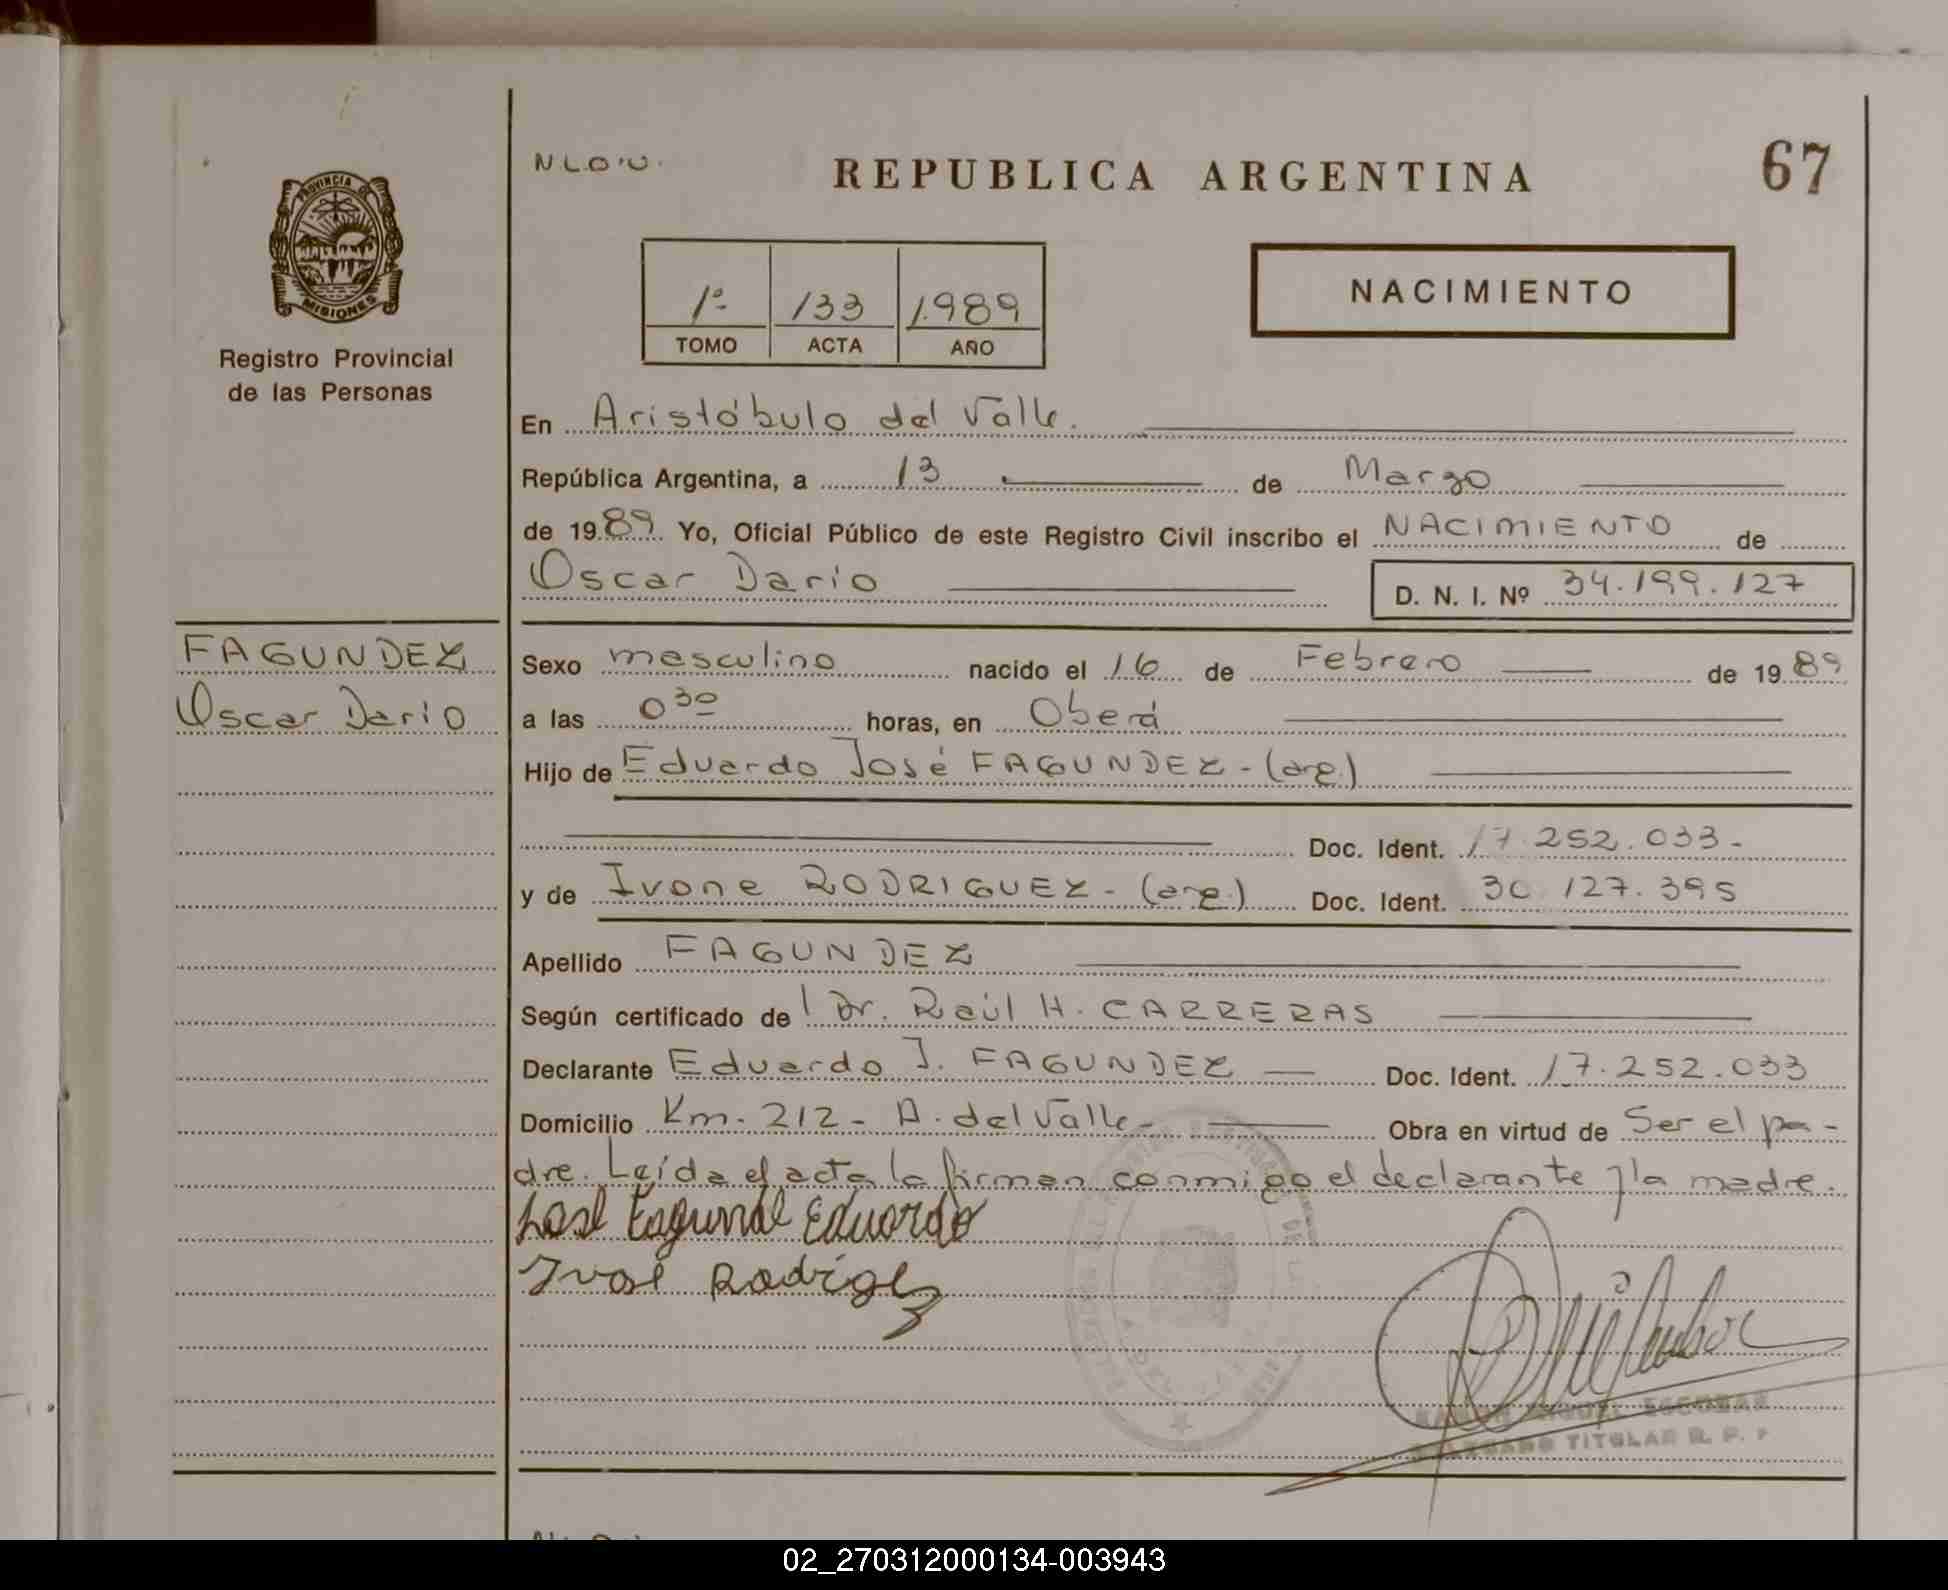 N.L.O.U.
REPUBLICA ARGENTINA
67
PROVINCIA DE
MISIONES
Registro Provincial
de las Personas
1º 133 1.989
TOMO ACTA AÑO
NACIMIENTO
En Aristóbulo del Valle.
República Argentina, a 13 de Marzo
de 1989 Yo, Oficial Público de este Registro Civil inscribo el NACIMIENTO de
Oscar Dario D. N. I. Nº 34.199.127
FAGUNDEZ
Oscar Dario
Sexo masculino nacido el 16 de Febrero de 1989
a las 0 30 horas, en Oberá
Hijo de Eduardo José FAGUNDEZ - (arg.)
Doc. Ident. 17.252.033-
y de Ivone RODRIGUEZ - (arg.) Doc. Ident. 30.127.395
Apellido FAGUNDEZ
Según certificado de Dr. Raúl H. CARRERAS
Declarante Eduardo J. FAGUNDEZ Doc. Ident. 17.252.033
Domicilio Km. 212 - A. del Valle - Obra en virtud de Ser el pa-
dre. Leída el acta la firman conmigo el declarante y la madre.
Fagundez Eduardo
ESCOBAR
TITULAR R. P. P
02_270312000134-003943